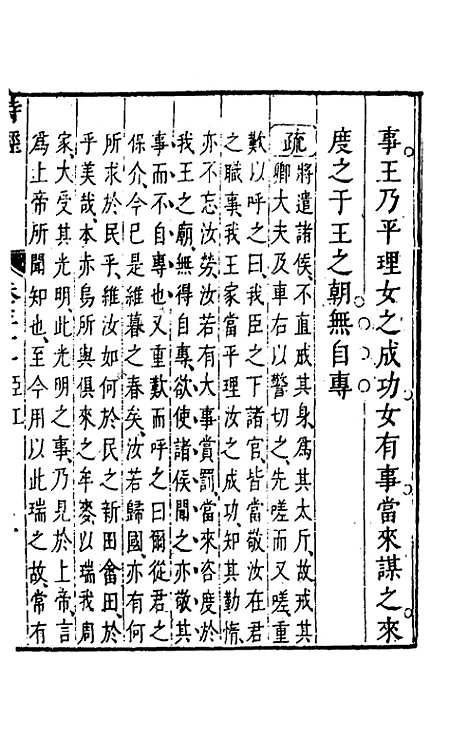 事王乃平理女之成功女有事當來謀之來
度之于王之朝無自專
疏將遣諸侯不直戒其身為其太斥故戒其
卿大夫及車右以警切之先嗟而又嗟重
歎以呼之曰我臣之下諸官皆當敬汝在君
之職事我王家當平理汝之成功知其勤惰
亦不忘汝勞汝若有大事賞罰當來咨度於
我王之廟無得自專欲使諸侯聞之亦敬其
事而不自專也又重歎而呼之曰爾從君之
保介今已是維暮之春矣汝若歸國亦有何
所求於民乎維汝如何於民之新田畬田於
乎美哉本赤烏所與俱來之牟麥以瑞我周
家大受其光明此光明之事乃見於上帝言
為上帝所聞知也至今用以此瑞之故常有
詩經